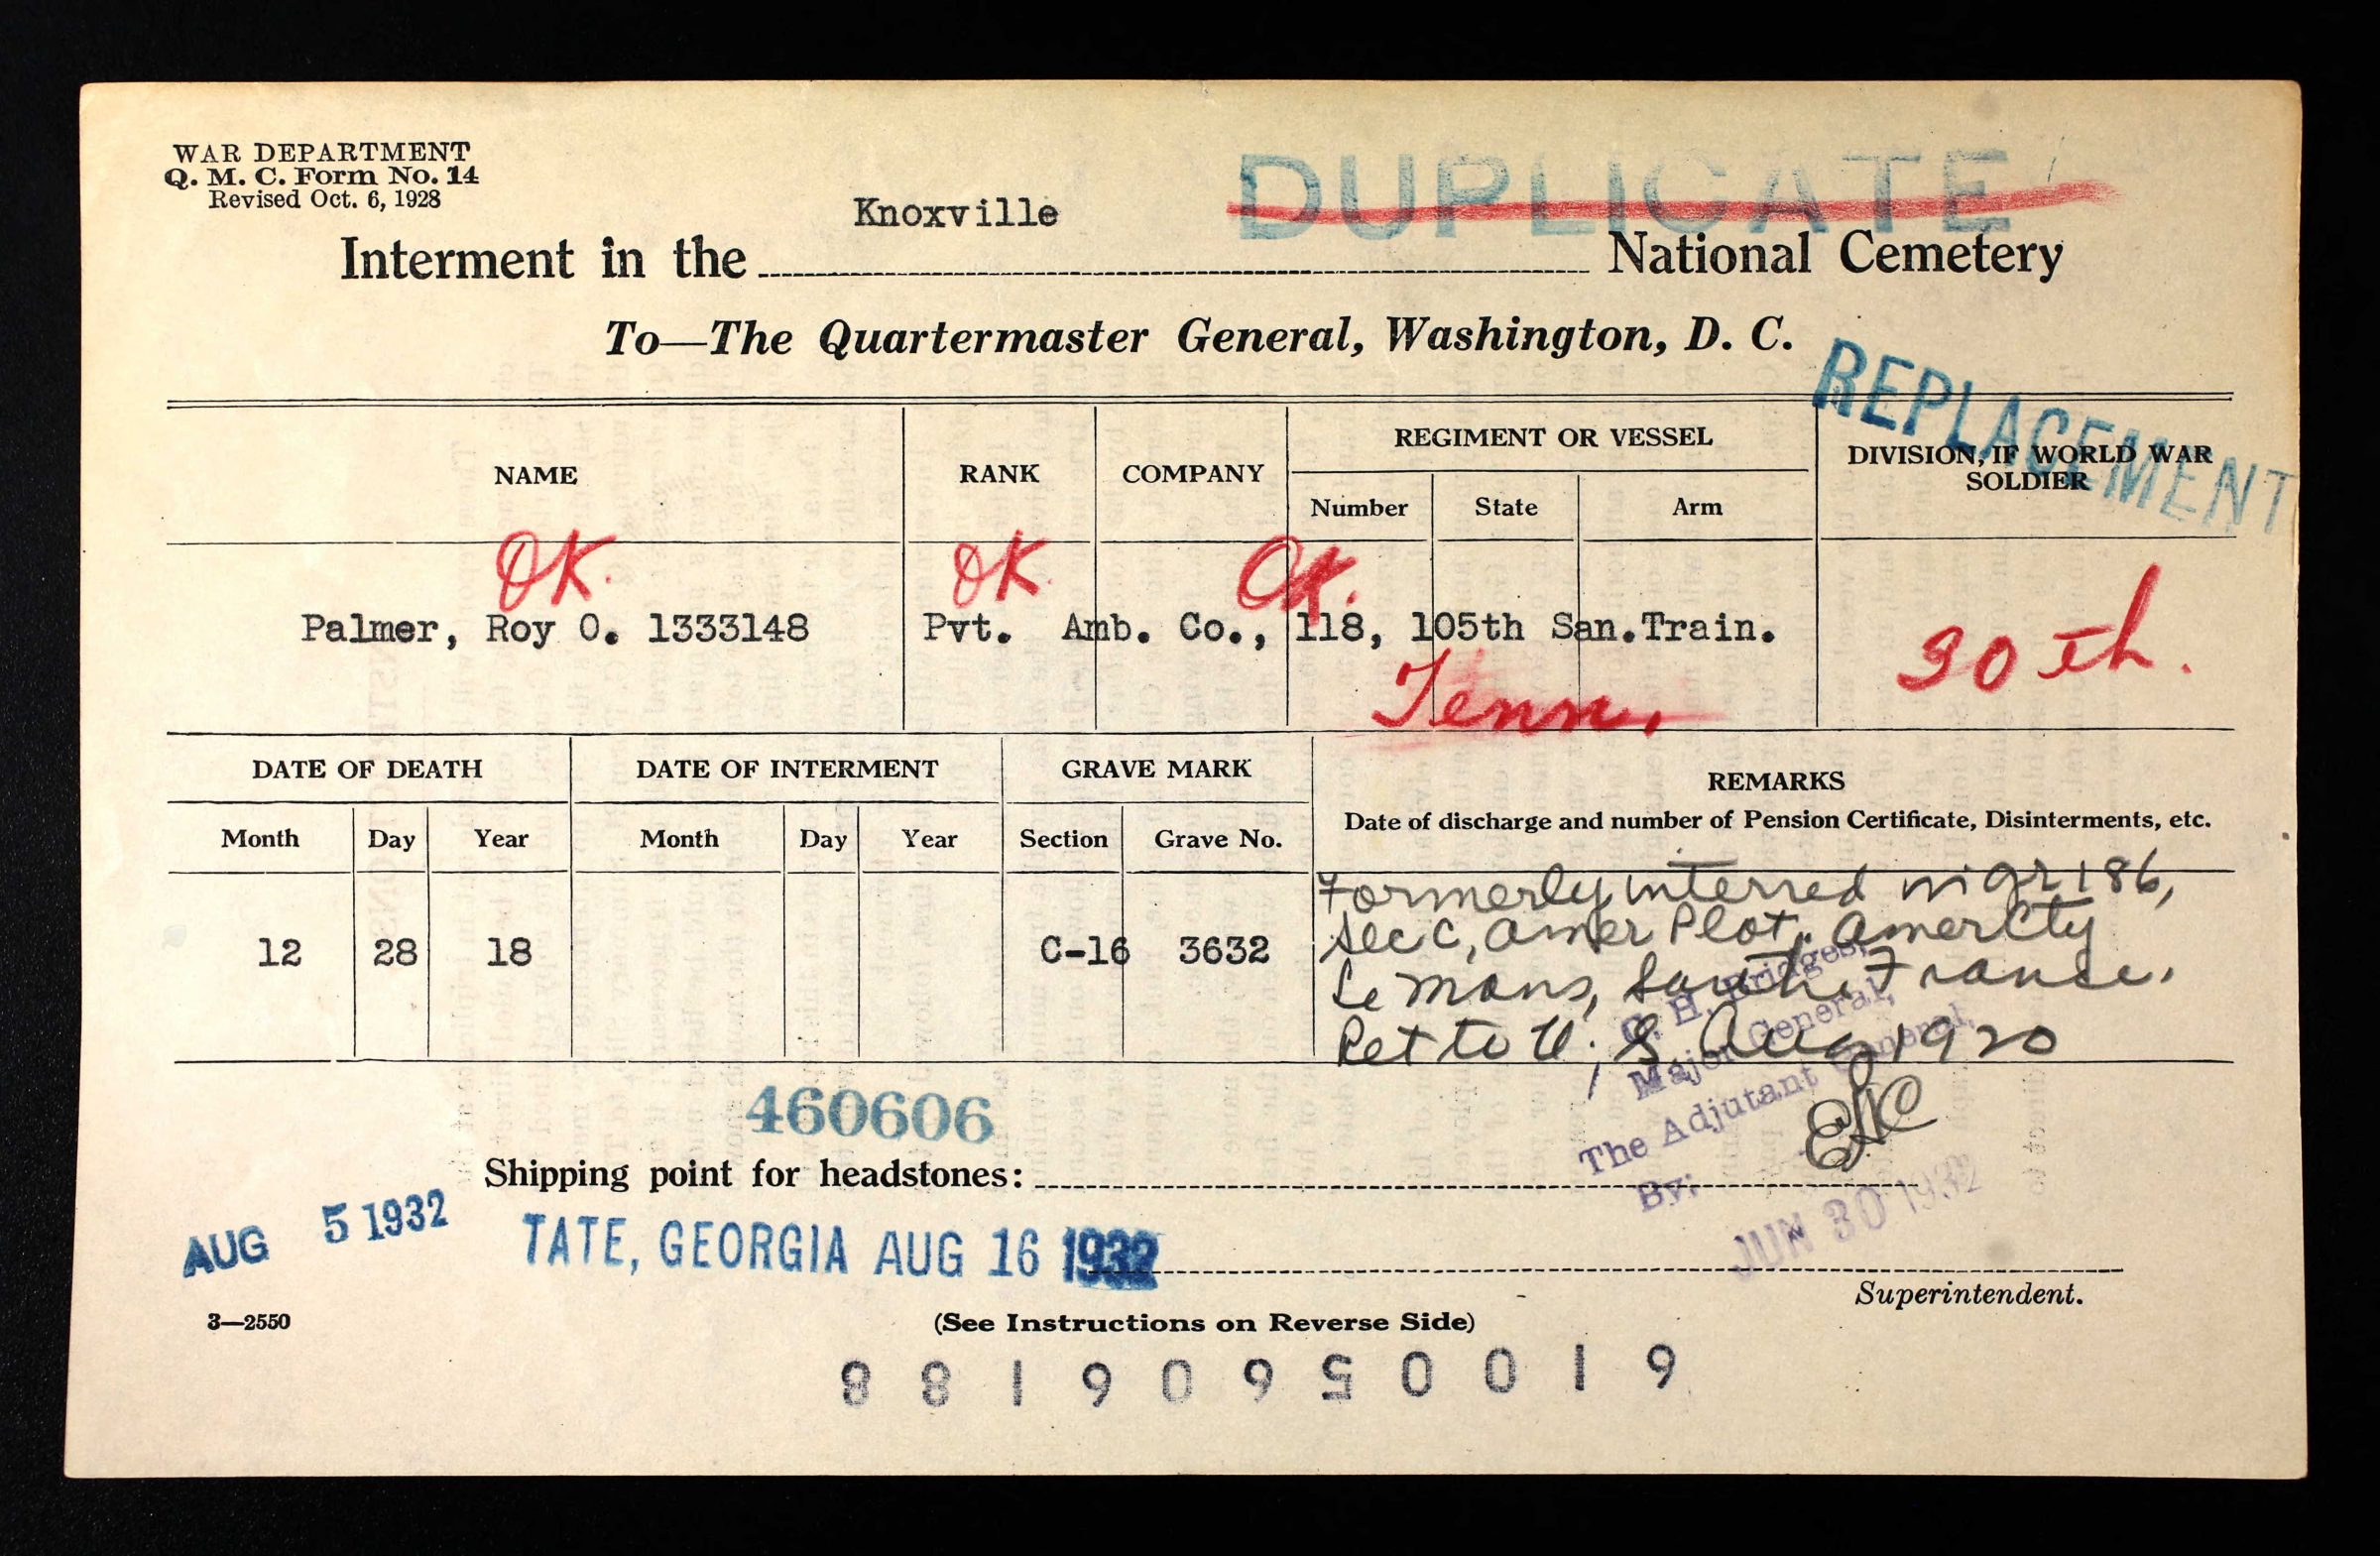 WAR DEPARTMENT
Q. M. C. Form No. 14
Revised Oct. 6, 1928
DUPLICATE
Knoxville
Interment in the National Cemetery
To—The Quartermaster General, Washington, D. C.
REPLACEMENT
NAME RANK COMPANY REGIMENT OR VESSEL DIVISION, IF WORLD WAR SOLDIER
Number State Arm
OK. OK. OK.
Palmer, Roy O. 1333148 Pvt. Amb. Co., 118, 105th San.Train. 30th.
Tenn.
DATE OF DEATH DATE OF INTERMENT GRAVE MARK REMARKS
Date of discharge and number of Pension Certificate, Disinterments, etc.
Month Day Year Month Day Year Section Grave No.
12 28 18 C-16 3632
Formerly interred in gr 186,
Sec C, Amer Plot, Amer Cty
Le Mans, Sarthe France.
Ret to U. S Aug 1920
C. H. Bridges,
Major General,
The Adjutant General,
By:
460606
Shipping point for headstones:
JUN 30 1932
AUG 5 1932
TATE, GEORGIA AUG 16 1932
Superintendent.
3—2550
(See Instructions on Reverse Side)
8 8 1 6 0 6 5 0 0 1 9